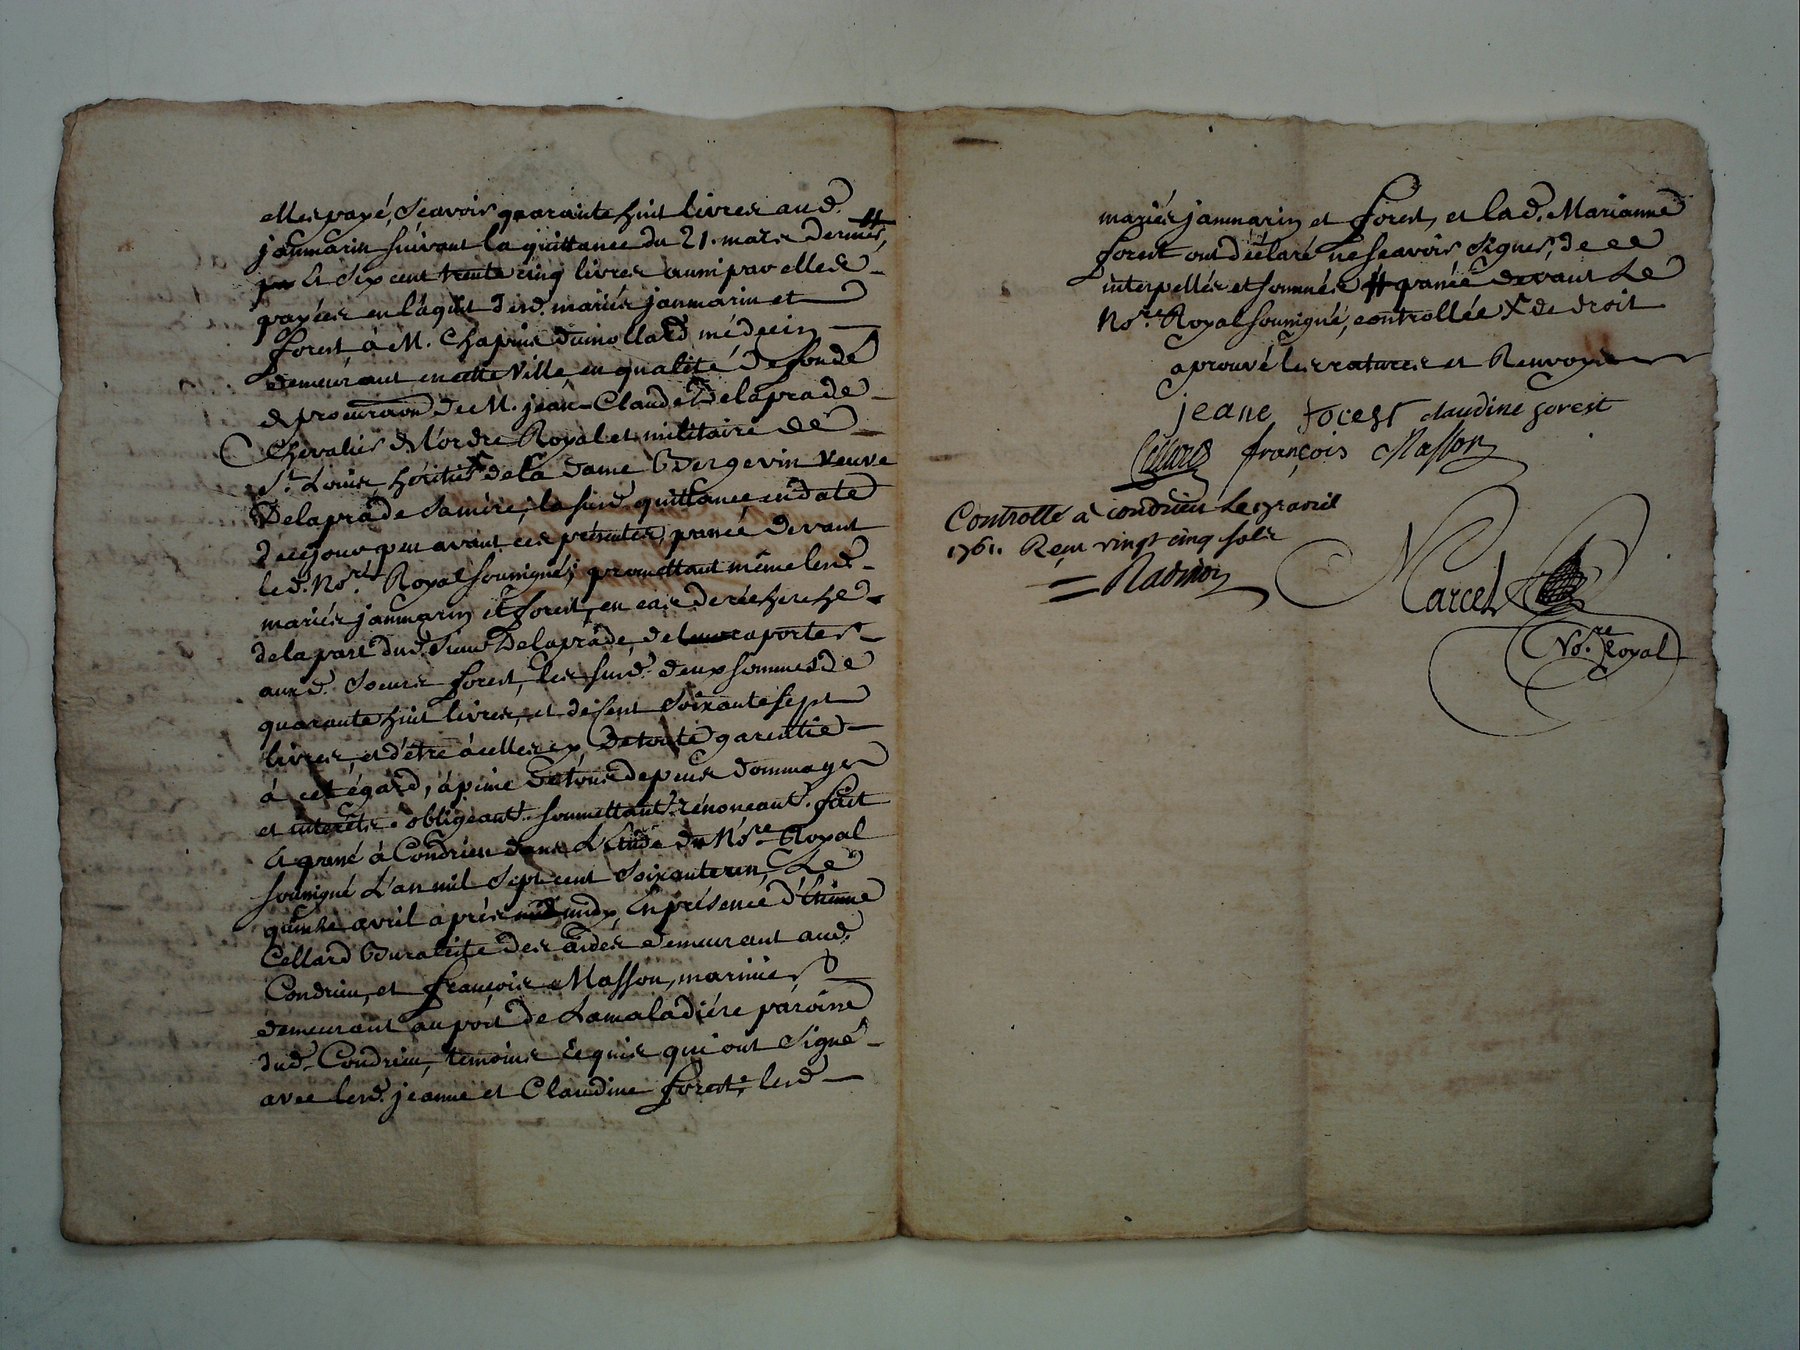 elles payé, Scavoir quarante huit livres aud.
janmarin suivant la quittance du 21. mars dernier, #
et six cent trente cinq livres aussi par elles
payées en l'aquit desd. mariés janmarin et
forest, à M. Chapuis Dumollard médecin
demeurant en cette Ville en qualité de fondé
de procuration de M. jean-Claude Delaprade
Chevalier de l'ordre Royal et militaire de
St. Louis, héritier de la dame Vergevin veuve
Delaprade sa mère, la susd. quittance en date
de ce jour peu avant ces présentes, passée devant
led. Nore. Royal soussigné, promettant même lesd.
mariés janmarin et forest, en cas de recherche
de la part dud. Sieur Delaprade, de raporter
auxd. Soeurs forest, les susd. deux sommes de
quarante huit livres, et de cent Soixante sept
livres, et d'être à celles cy de toute garentie
à cet égard, à peine de tous depens dommages
et interêts. obligeant. soumettant. rénoncant. fait
et passé à Condrieu dans L'Etude du Nore. Royal
soussigné L'an mil Sept cent Soixante un, Le
quinze avril après midy, En présence d'Etienne
Cellard Buraliste des aides demeurant aud.
Condrieu, et françois Masson, marinier
demeurant au port de Lamaladiére paroisse
dud. Condrieu, témoins requis qui ont Signé
avec lesd. jeanne et Claudine forest, lesd.
mariés janmarin et forest, et lad. Marianne
forest ont déclaré ne scavoir Signer, de ce
interpellés et sommés # passée devant Le
Nore. Royal soussigné, controllée X de droit
aprouvé les ratures et Renvoys
jeane forest claudine forest
Cellard françois Masson
Controllé a condrieu Le avril
1761. Reçu vingt cinq sols
Marcel
Nore. Royal